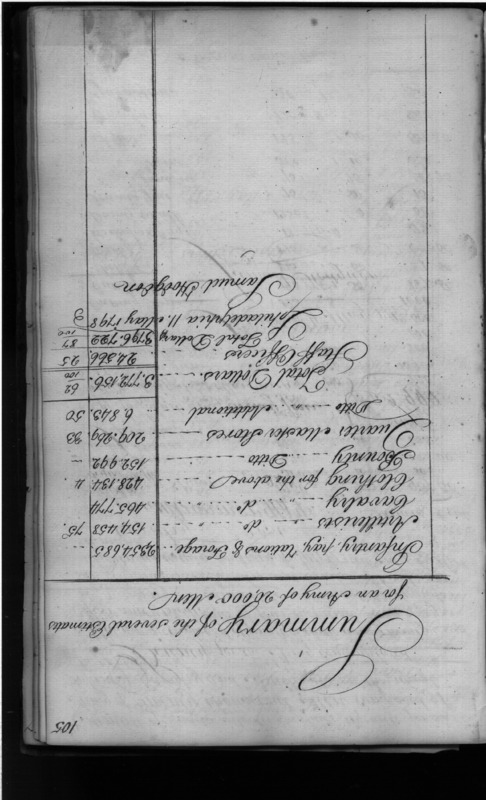 105
Summary of the several Estimates
for an Army of 20,000 Men.
Infantry, pay, Rations & Forage 2,354,685 ..
Artillerists do 154,458 75
Cavalry do 465,774
Clothing for the above 428,134. 4
Bounty Ditto 152,992
Quarter Master Stores 209,269 33
Ditto Additional 6,843. 50
Total Dollars 3,772,156. 62/100
Staff Officers 24,566 25
Total Dollars 3,796,722 87/100
Philadelphia 11 May 1798
Samuel Hodgdon